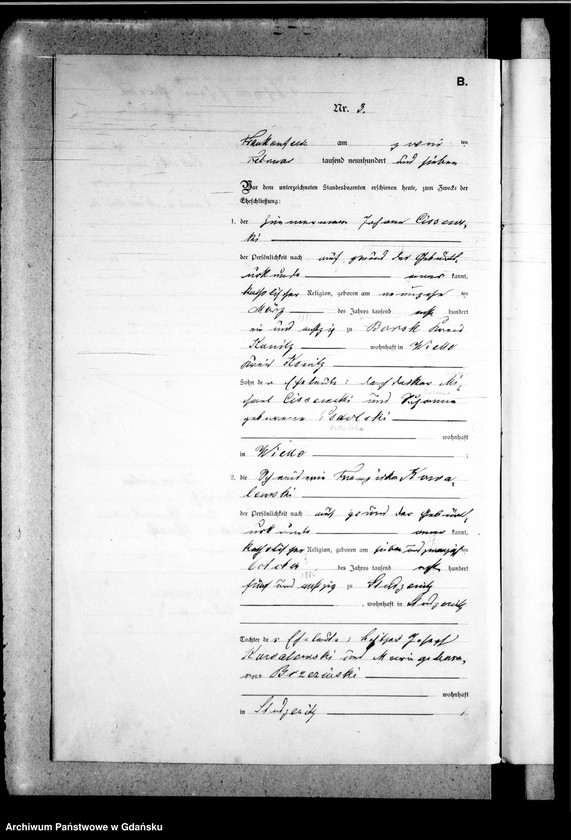 B.
Nr. 3.
am zwei ten
Februar tausend neunhundert und sieben
Vor dem unterzeichneten Standesbeamten erschienen heute, zum Zwecke der
Eheschließung:
1. der Zimmermann Johann Cissews-
ki
der Persönlichkeit nach auf grund der Geburts-
urkunde kannt,
katholischer Religion, geboren am neunzehn ten
März des Jahres tausend acht hundert
ein und achtzig zu Borsk Kreis
Konitz wohnhaft in Wielle
Kreis Konitz
Sohn der Eheleute: Mi-
chael Cissewski und
geborene
wohnhaft
in Wielle
2. die Schneiderin Franziska Kowa-
lewski
der Persönlichkeit nach auf grund der Geburts-
urkunde kannt,
katholischer Religion, geboren am sieben und zwanzigsten
October des Jahres tausend acht hundert
fünf und achtzig zu Studzenitz
, wohnhaft in Studzenitz
Tochter der Eheleute: Josef
Kowalewski und Maria gebore-
ne Brzezinski
wohnhaft
in Studzenitz
Archiwum Państwowe w Gdańsku